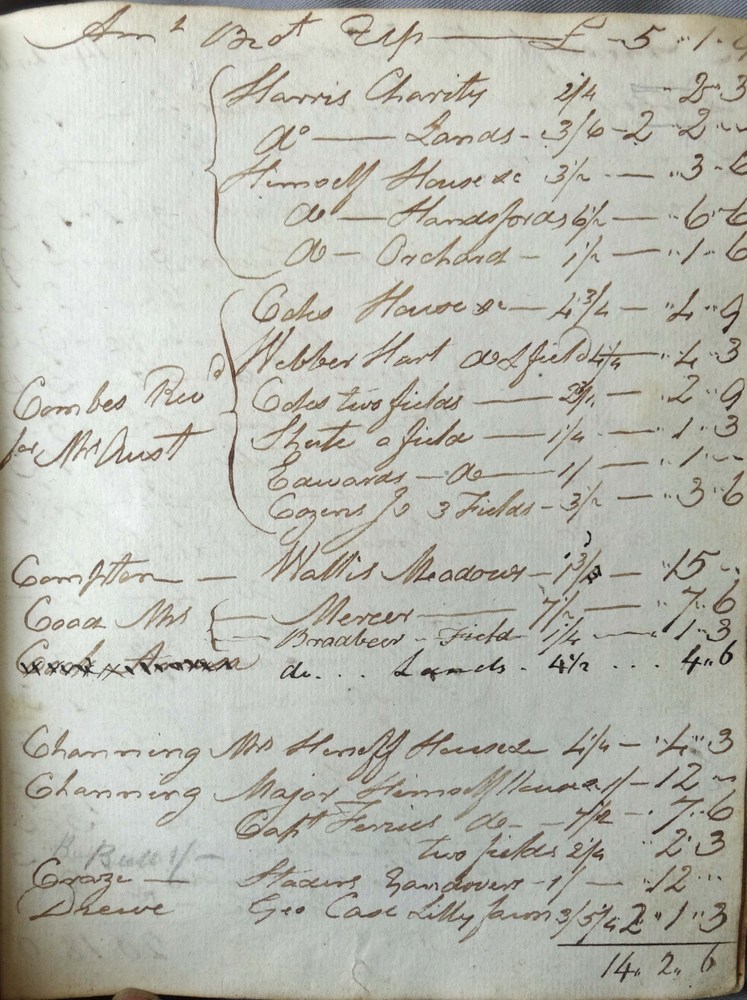 Amt Brot Up — £ 5 " 1 "
Harris Charity 2/4 — 2 " 3
do — Lands - 3/6 - 2 " 2 "
Himself House &c 3/2 — " 3 - 6
do — Handsfords 6/2 — " 6 " 6
do — Orchard - 1/2 — " 1 " 6
Coles House &c — 4 3/4 — " 4 " 9
Webber Hart do & field 4/4 — " 4 " 3
Combes Revd
Coles two fields — " 2 " 9
Shute a field — 1/4 — " 1 " 3
for Mrs Aust
Edwards — do — 1/ — " 1 "
Cozens Jo 3 Fields - 3/2 — " 3 " 6
Compton — Wallis Meadows — — " 15 "
Coad Mrs — Mercer — 7/2 — " 7 " 6
Bradbeer - Field 1/4 — " 1 " 3
do. . . Lands . 4/2 . . . 4 " 6
Channing Mrs Herself House &c 4/4 — " 4 " 3
Channing Major Himself House &c 1/ — 12 "
Capt Ferries do — 7/2 — " 7 " 6
two fields 2/4 " 2 " 3
Bull 1/ —
Craze — Staders Landovers - 1/ — " 12 "
Drewe Geo Case Lilly farm 3/5/4 2 " 1 " 3
14 " 2 " 6